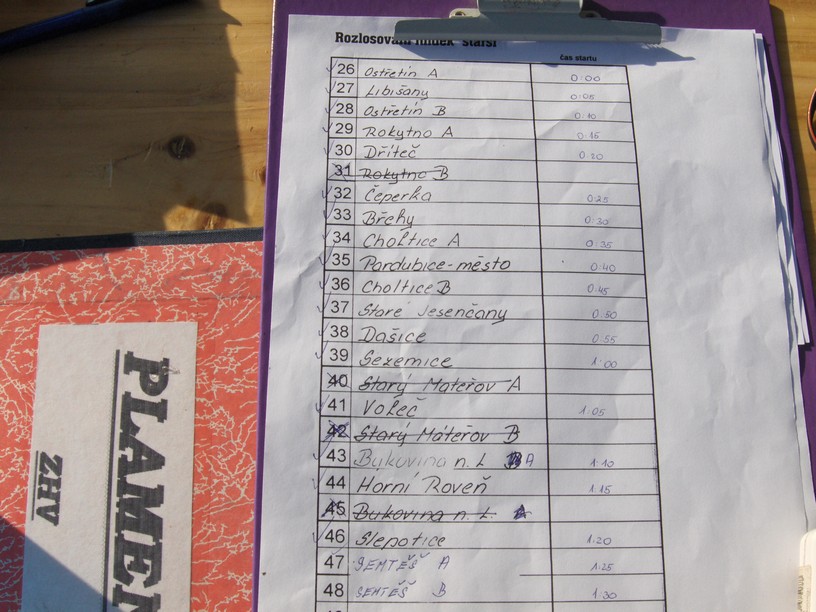 Rozlosování hlídek "starší"
čas startu
26 Ostřetín A 0:00
27 Libišany 0:05
28 Ostřetín B 0:10
29 Rokytno A 0:15
30 Dříteč 0:20
31 Rokytno B
32 Čeperka 0:25
33 Břehy 0:30
34 Choltice A 0:35
35 Pardubice-město 0:40
36 Choltice B 0:45
37 Staré Jesenčany 0:50
38 Dašice 0:55
39 Sezemice 1:00
40 Starý Mateřov A
41 Voleč 1:05
42 Starý Máteřov B
43 Bukovina n. L A 1:10
44 Horní Roveň 1:15
45 Bukovina n. L.
46 Slepotice 1:20
47 SEMTĚŠ A 1:25
48 SEMTĚŠ B 1:30
PLAMEN
ZHV